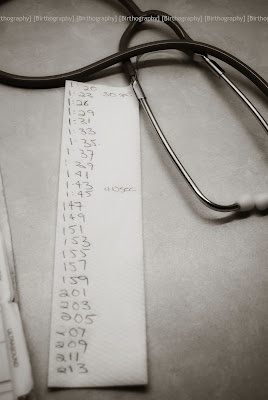 nthography] [Birthography] [Birthography] [Birthography] [Birthography] [Birthography] [Birthog
1:20
1:23 50 sec
1:26
1:29
1:31
1:33
1:35
1:37
1:39
1:41
1:43 40 sec
1:45
147
149
151
153
155
157
159
201
203
205
207
209
211
213